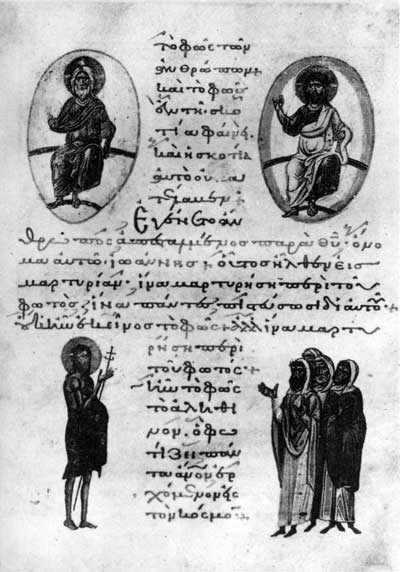 τὸ φῶς τῶν
ἀνθρώπων·
καὶ τὸ φῶς
ἐν τῇ σκο
τία φαίνει·
καὶ ἡ σκοτία
αὐτὸ οὐ κα
τέλαβεν·
Ἐγένετο ἄν
θρωπος ἀπεσταλμένος παρὰ θῦ· ὄνο
μα αὐτῶ ἰωάννης· οὗτος ἦλθεν εἰς
μαρτυρίαν· ἵνα μαρτυρήση περὶ τοῦ
φωτός· ἵνα πάντες πιστεύσωσι δι αὐτοῦ·
οὐκ ἦν ἐκεῖνος τὸ φῶς· ἀλλ ἵνα μαρτυ
ρήση περὶ
τοῦ φωτός·
ἦν τὸ φῶς
τὸ ἀληθι
νόν· ὃ φω
τίζει πάν
τα ἄνον ἐρ
χόμενον εἰς
τὸν κόσμον·